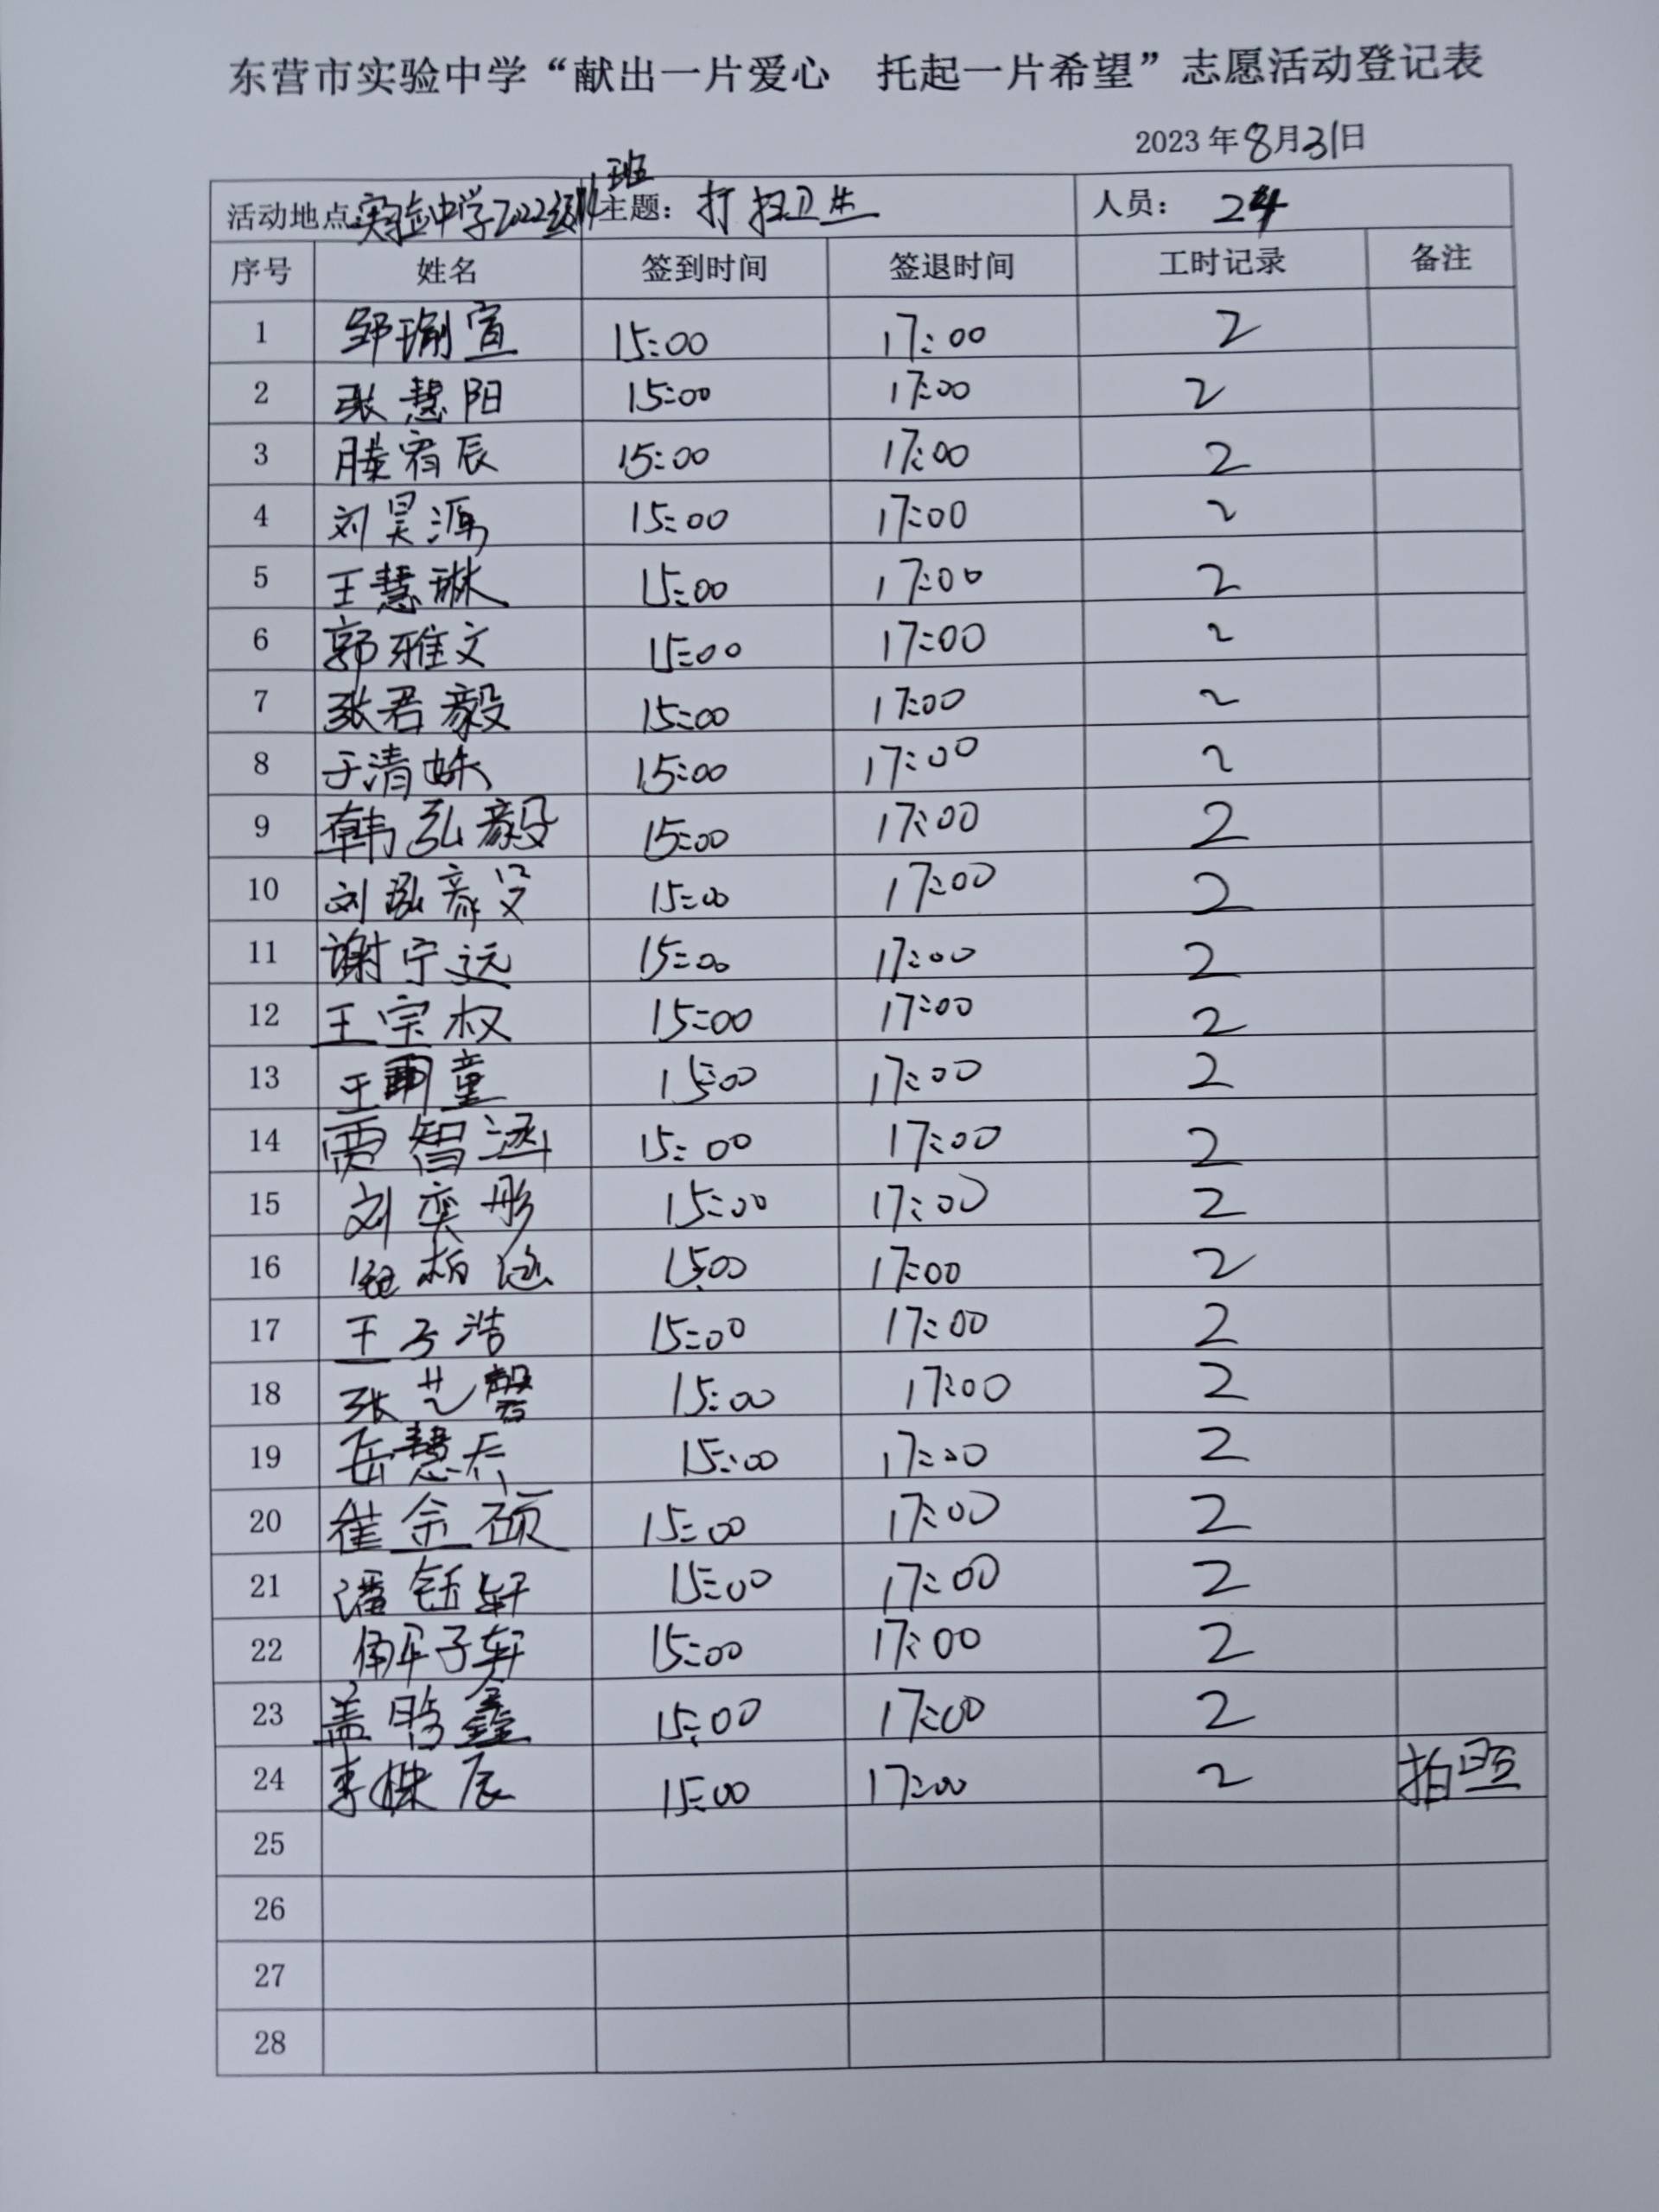 东营市实验中学“献出一片爱心 托起一片希望”志愿活动登记表
2023年8月31日
班
活动地点 实验中学2022级 主题：打扫卫生 人员：24
序号 姓名 签到时间 签退时间 工时记录 备注
1 邹瑜宣 15:00 17:00 2
2 张慧阳 15:00 17:00 2
3 滕宥辰 15:00 17:00 2
4 刘昊 15:00 17:00 2
5 王慧琳 15:00 17:00 2
6 郭雅文 15:00 17:00 2
7 张君毅 15:00 17:00 2
8 于清姝 15:00 17:00 2
9 韩弘毅 15:00 17:00 2
10 刘泓毅 15:00 17:00 2
11 谢宁远 15:00 17:00 2
12 王宗权 15:00 17:00 2
13 王雨童 15:00 17:00 2
14 贾智涵 15:00 17:00 2
15 刘奕彤 15:00 17:00 2
16 柏 15:00 17:00 2
17 王子浩 15:00 17:00 2
18 张艺馨 15:00 17:00 2
19 岳慧 15:00 17:00 2
20 崔金硕 15:00 17:00 2
21 潘钰轩 15:00 17:00 2
22 子轩 15:00 17:00 2
23 盖鑫 15:00 17:00 2
24 李姝辰 15:00 17:00 2 拍照
25
26
27
28